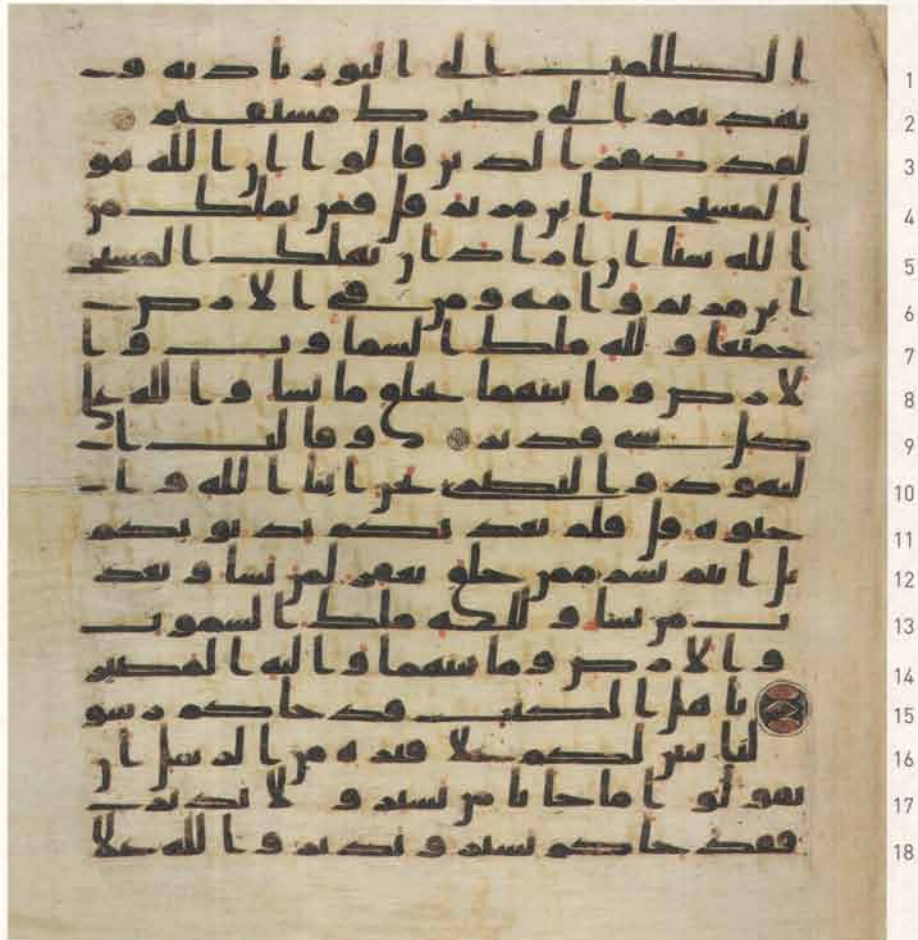 الظلمت الى النور باذنه و 1
يهديهم الى صرط مستقيم 2
لقد كفر الذين قالوا ان الله هو 3
المسيح ابن مريم قل فمن يملك من 4
الله شيا ان اراد ان يهلك المسيح 5
ابن مريم وامه ومن في الارض 6
جميعا ولله ملك السماوت وا 7
لارض وما بينهما يخلق ما يشا والله على 8
كل شي قدير وقالت ا 9
ليهود والنصرى نحن ابنا الله وا 10
حبوه قل فلم يعذبكم بذنوبكم 11
بل انتم بشر ممن خلق يغفر لمن يشا ويعذ 12
ب من يشا ولله ملك السموت 13
والارض وما بينهما واليه المصير 14
ياهل الكتب قد جاكم رسو 15
لنا يبين لكم على فترة من الرسل ان 16
تقولوا ما جانا من بشير ولا نذير 17
فقد جاكم بشير ونذير والله على 18